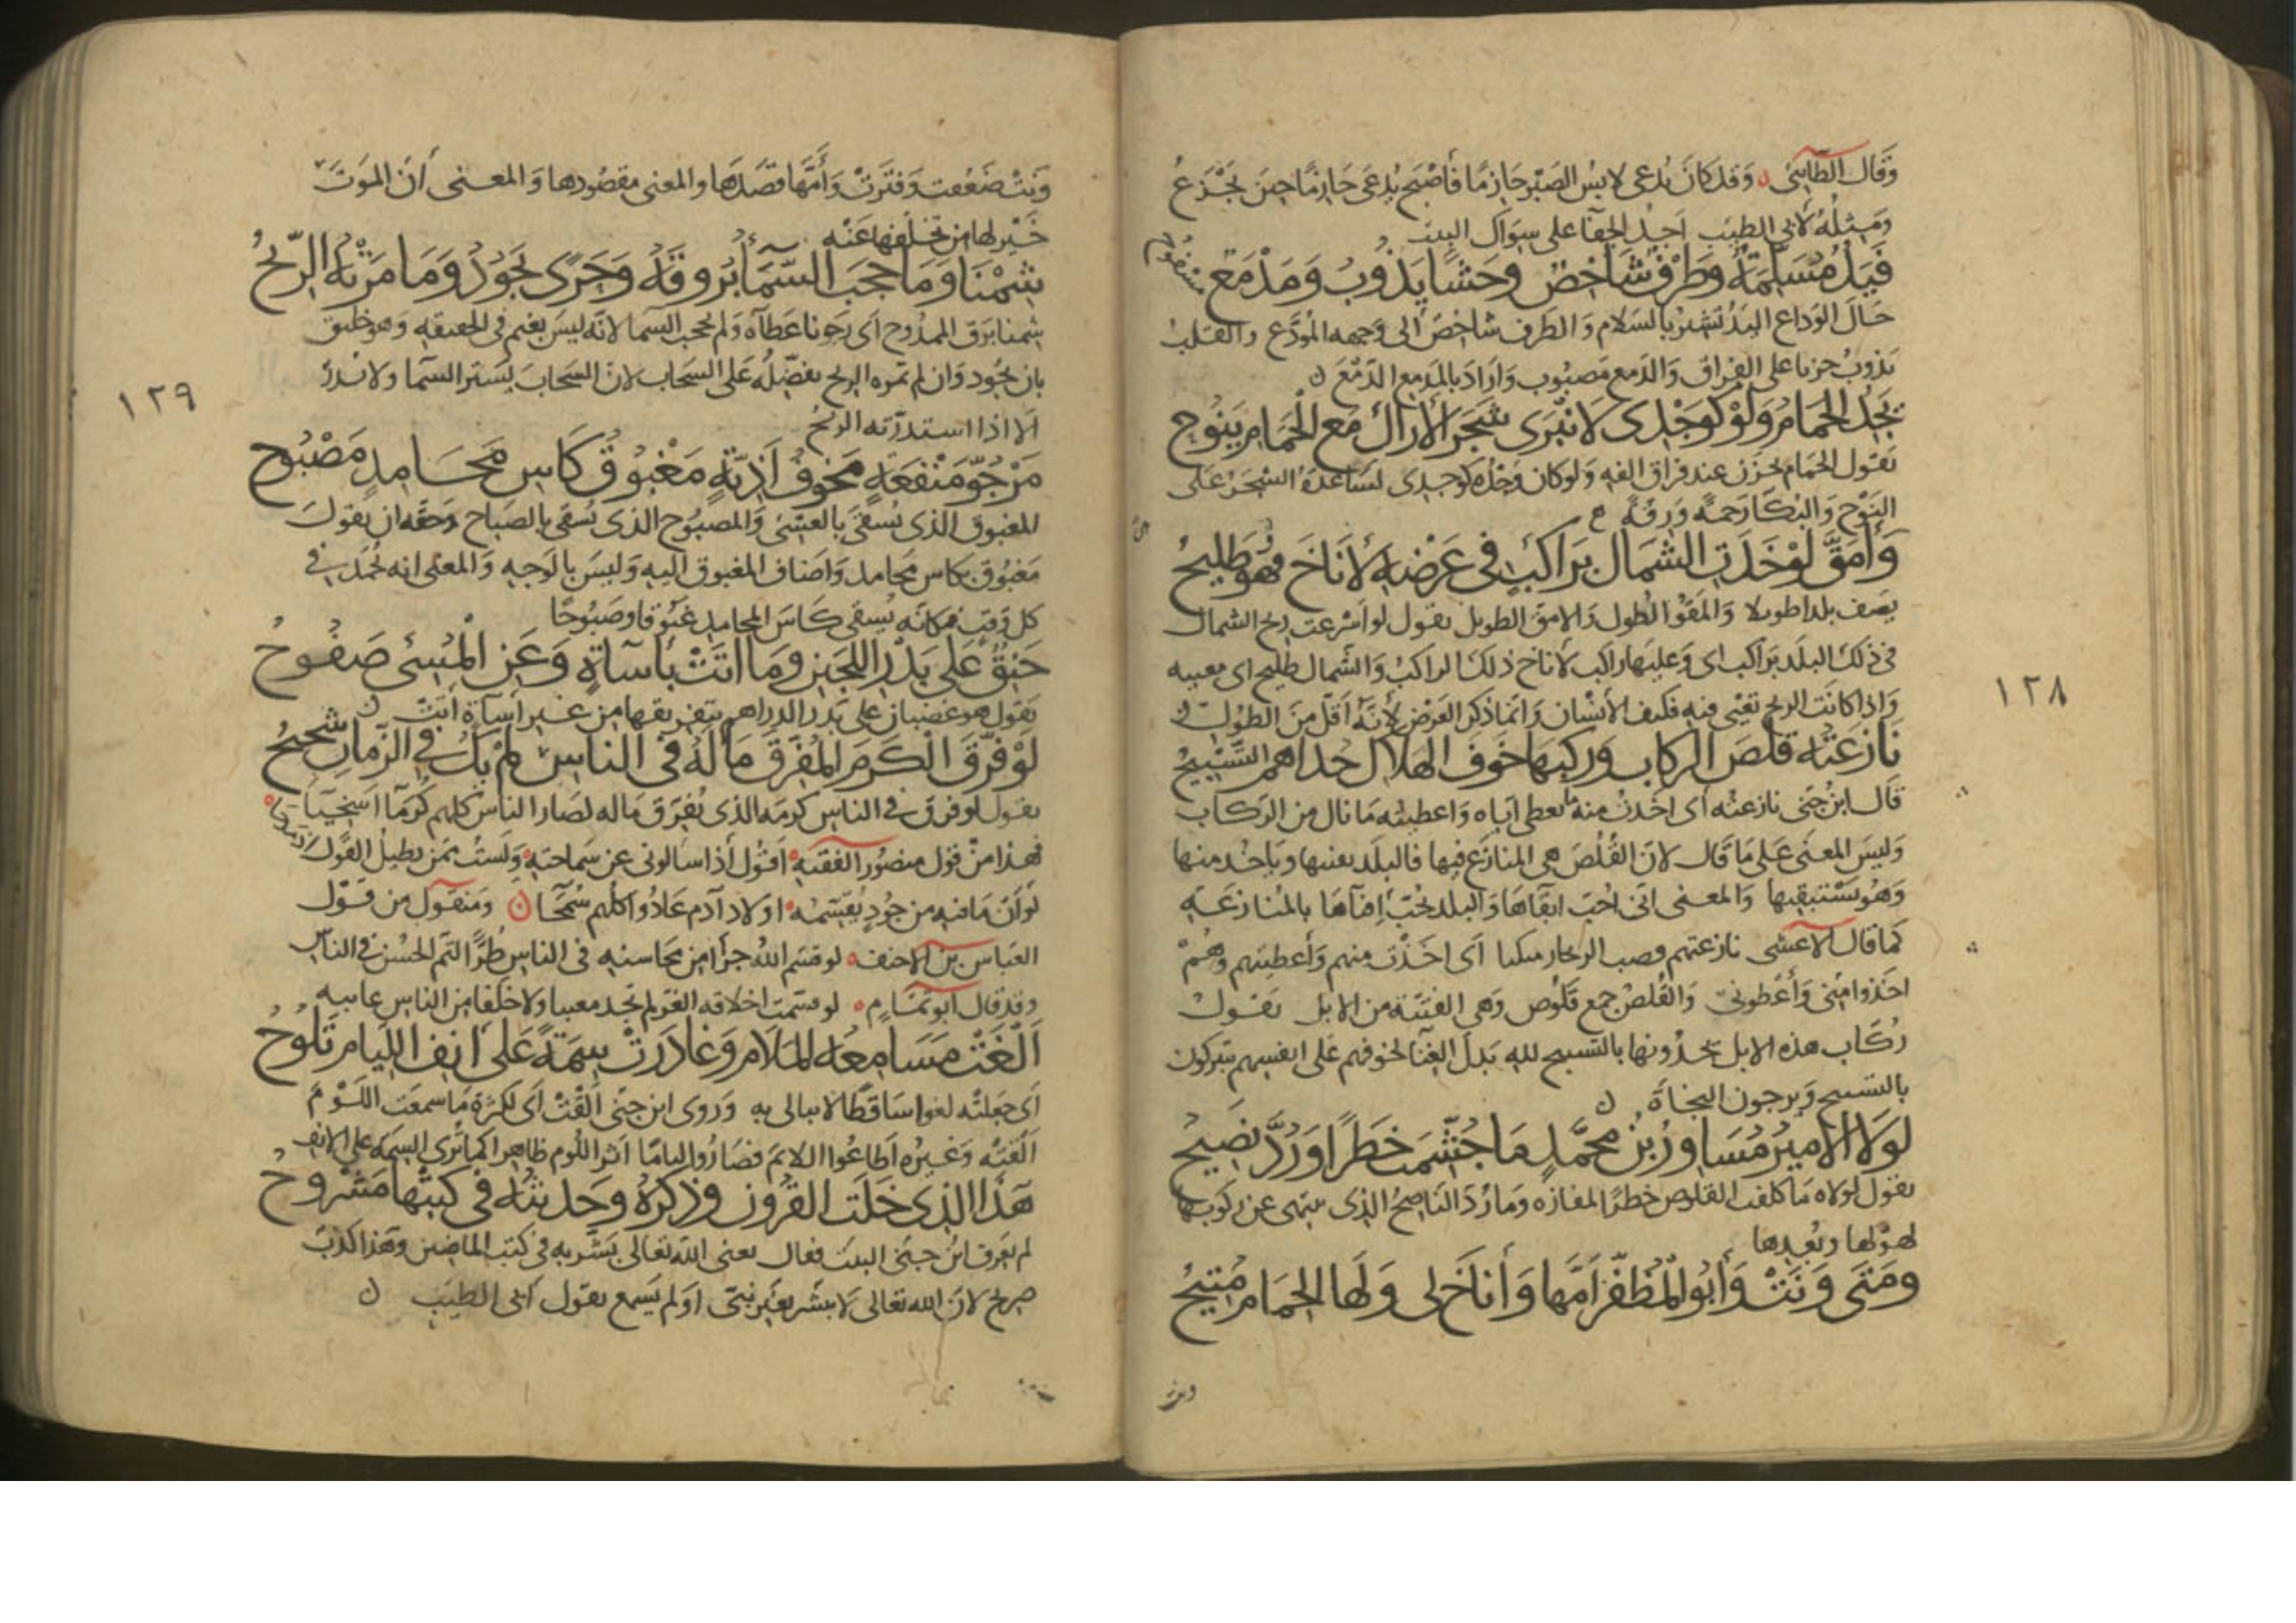 وَقَال الطآئي وَقد كانَ يُدعى لابسُ الصَبْر حَازمًا فأصْبحَ يُدعَى حَازمًا حينَ يَجْزَعُ
وَمثلهُ لابى الطيَب اَجدُ الجفآ على سوَاك
فَيَدٌ مُسَلِّمَةٌ وَطَرْفٌ شَاخِصٌ وَحَشًا يَذُوبُ وَمَدْمَعٌ مَسْفُوحُ
حَال الوَداع اليَدُ تشيرُ بالسَلام وَالطرف شاخصٌ الى وَجهه المُودَّع والقلبُ
يَذوبُ حزنا على الفراق وَالدَمع مَصبُوب وَاَرَادَ بالمَدمع الدَمْعَ
يَجِدُ الحَمَامُ وَلَوْ كَوَجْدِى لَانْبَرَى شَجَرُ الأَرَاكِ مَعَ الحَمَامِ يَنُوحُ
يقول الحَمام يحزَن عند فراق الفه وَلوكان وَجْدُه كوجدى لسَاعَدَهُ الشجَر عَلى
النَوْح وَالبُكآ رَحمةً وَرقةً
وَأَمَقَّ لَوْ خَدَتِ الشَمَالُ بِرَاكِبٍ فى عَرْضِهِ لَأَنَاخَ وَهْىَ طَلِيحُ
يصَف بلدا طويلا وَالمَقَقُ الطول وَالامق الطويل يقول لو اَسْرعت ريح الشمال
فى ذلكَ البلَد برَاكب اى وَعليهَا راكب لأناخ ذلكَ الراكبُ وَالشَمال طليح اى معييه
وَاذا كانَت الريح تعْيَى فيه فكيف الأنسان وَانمَا ذكر العَرْض لأنهُ اَقلّ منَ الطول
نَازَعْتُهُ قُلُصَ الركابِ وَرَكْبُهَا خَوْفَ الهَلَاكِ حُدَاهُمُ التَّسْبِيحُ
قَال ابنُ جنى نازعتُه اَى اخَذتُ منه مَا يعطى اياه وَاعطيتُه مَا نال من الرَكاب
وَليسَ المعنى عَلى مَا قال لانَ القُلُصَ هى المتنازَع فيها فالبلَد يفنيها وَيَاخُذ منها
وَهُو يَسْتبقيها وَالمعنى انى احُبّ ابقآهَا وَالبلد يُحبّ افنآهَا بالمُنازَعَة
كما قال الاعشى نازعتهم قضب الريحان متكيا اَى اخَذْتُ منهم وَاَعطيتهم وَهُمْ
اخَذوا منى وَاَعْطونى وَالقُلصُ جمع قَلوص وَهى الفتيّة من الابل يقول
رُكّاب هذه الابل يَحدُونها بالتسبيح لله بَدلَ الغنآ لخوفهم على انفسهم يتبركون
بالتسبيح وَيرجون النجَاةَ
لَوْلَا الأَمِيرُ مُسَاوِرُ بْنُ مُحَمَّدٍ مَا جُشِّمَتْ خَطَرًا وَرُدَّ نَصِيحُ
يقول لولاه مَا كلفت القلوص خطرَ المفازه وَمَا رُدَ الناصحُ الذى ينهى عن ركوبها
لهَوْلها وَبُعدها
وَمَتَى وَنَتْ وَأَبُو المُظَفَّرِ أَمُّهَا وَأَنَاخَ لى وَلَهَا الحِمَامَ مُتِيحُ
ونت
١٢٨
وَنَتْ ضَعُفت وَفتَرَتْ وَاَمَّهَا قصَدَهَا والمعنى مقصُودها وَالمعنى أن المَوتَ
خَيْر لها من تخلفها عَنْه
شِمْنَا وَمَا حَجَبَ السَّمَآءَ بُرُوقَهُ وَحَرًى يَجُودُ وَمَا مَرَتْهُ الرِّيحُ
شمنا برَق الممدُوح اَى رَجونا عَطآه وَلم يحجب السمآ لانه ليسَ بغيم فى الحقيقه وَهو خليق
بان يجُود وَان لم تمره الريح يفضلُه عَلى السَحاب لانَ السَحابَ يَستر السَمآ وَلا يَدرّ
الا اذا استدرّته الريحُ
مَرْجُوُّ مَنْفَعَةٍ مَخُوفُ أَذِيَّةٍ مَغْبُوقُ كَاسِ مَحَامِدٍ مَصْبُوحُ
المغبوق الذى يُسقى بالعَشى وَالمصبُوح الذى يُسقى بالصَباح وَحقه ان يقول
مَغبُوق بكاس محامد وَاضاف المغبوق اليه وَليسَ بالوَجه وَالمعنى انه يُحمَد فى
كل وَقت فكانه يُسقى كَاسَ المحامد غبُوقا وصَبُوحًا
حَنِقٌ عَلَى بِدَرِ اللُّجَيْنِ وَمَا أَتَتْ بِإِسَآةٍ وَعَنِ الْمُسِئِ صَفُوحُ
يقول هو غضبان على بدر الدرَاهم يتفريقها من غير اسآة اَتتْ
لَوْ فُرِّقَ الْكَرَمُ المُفَرِّقُ مَالَهُ فى الناسِ لَمْ يَكُ فى الزَّمَانِ شَحِيحُ
يقول لو فرق فى الناس كرمه الذى يُفرَق مَاله لصَار الناس كلهم كُرمَآ اسخيآ
فهذا منْ قول منصُور الفقيه اَقول اذا سالونى عن سَماحته وَلستُ ممن يطيلُ القَول
لو اَنّ مَا فيه من جُودٍ يُقسّمه اولاد آدم عَادُوا كلهم سُمَحَآ وَمنقول من قول
العَباس بن الاحنف لو قسَم اللهُ جزأ من محاسنه فى الناس طُرًّا لتم الحُسْن فى الناس
وقد قال ابو تمّام لو قسّمت اخلاقه الغر لم تجد معيبا ولا خلقا من الناس عايبه
أَلْغَتْ مَسَامِعُهُ المَلَامَ وَغَادَرَتْ سِمَةً عَلَى أَنْفِ اللِّيَامِ تَلُوحُ
اَى جعَلته لغوا سَاقطًا لا يبالى به وَرَوى ابن جنى الفَتْ اَى لكثرة مَا سمعَت اللَوْمَ
اَلفَتْه وَغيرُه اَطاعُوا اللائمَ فصَارُوا لياما اَثر اللوم ظاهر اكما تَرى السمَة على الانف
هَذَا الَّذِى خَلَتِ القُرُونُ وَذِكْرُهُ وَحَدِيثُهُ فى كُتْبِهَا مَشْرُوحُ
لم يعَرف ابنُ جنى البيت فقال يعنى اللهَ تعَالى بَشَر به فى كتب الماضين وَهَذا كذبٌ
صريح لانَ الله تعالى لا يبشر بغَير نبىّ اوَ لم يَسمع يقول اَبى الطيَب
١٢٩